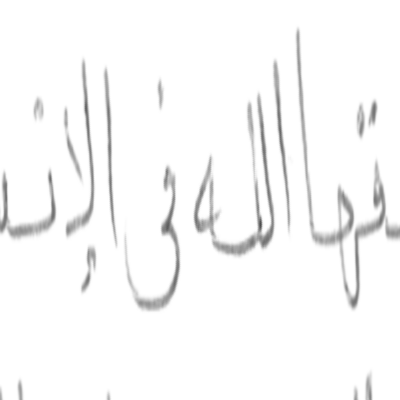 قها الله فى الإنسـ